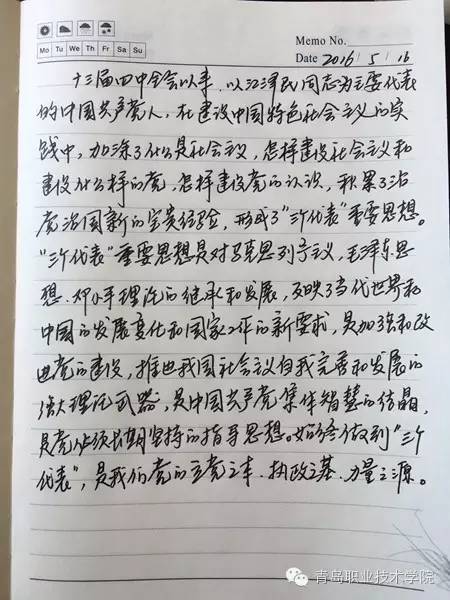 Mo Tu We Th Fr Sa Su
Memo No.
Date 2016 / 5 / 16
十三届四中全会以来,以江泽民同志为主要代表
的中国共产党人,在建设中国特色社会主义的实
践中,加深了什么是社会主义,怎样建设社会主义和
建设什么样的党,怎样建设党的认识,积累了治
党治国新的宝贵经验,形成了“三个代表”重要思想。
“三个代表”重要思想是对马克思列宁主义,毛泽东思
想、邓小平理论的继承和发展,反映了当代世界和
中国的发展变化和国家工作的新要求,是加强和改
进党的建设,推进我国社会主义自我完善和发展的
强大理论武器,是中国共产党集体智慧的结晶,
是党必须长期坚持的指导思想。始终做到“三个
代表”,是我们党的立党之本、执政之基、力量之源。
青岛职业技术学院